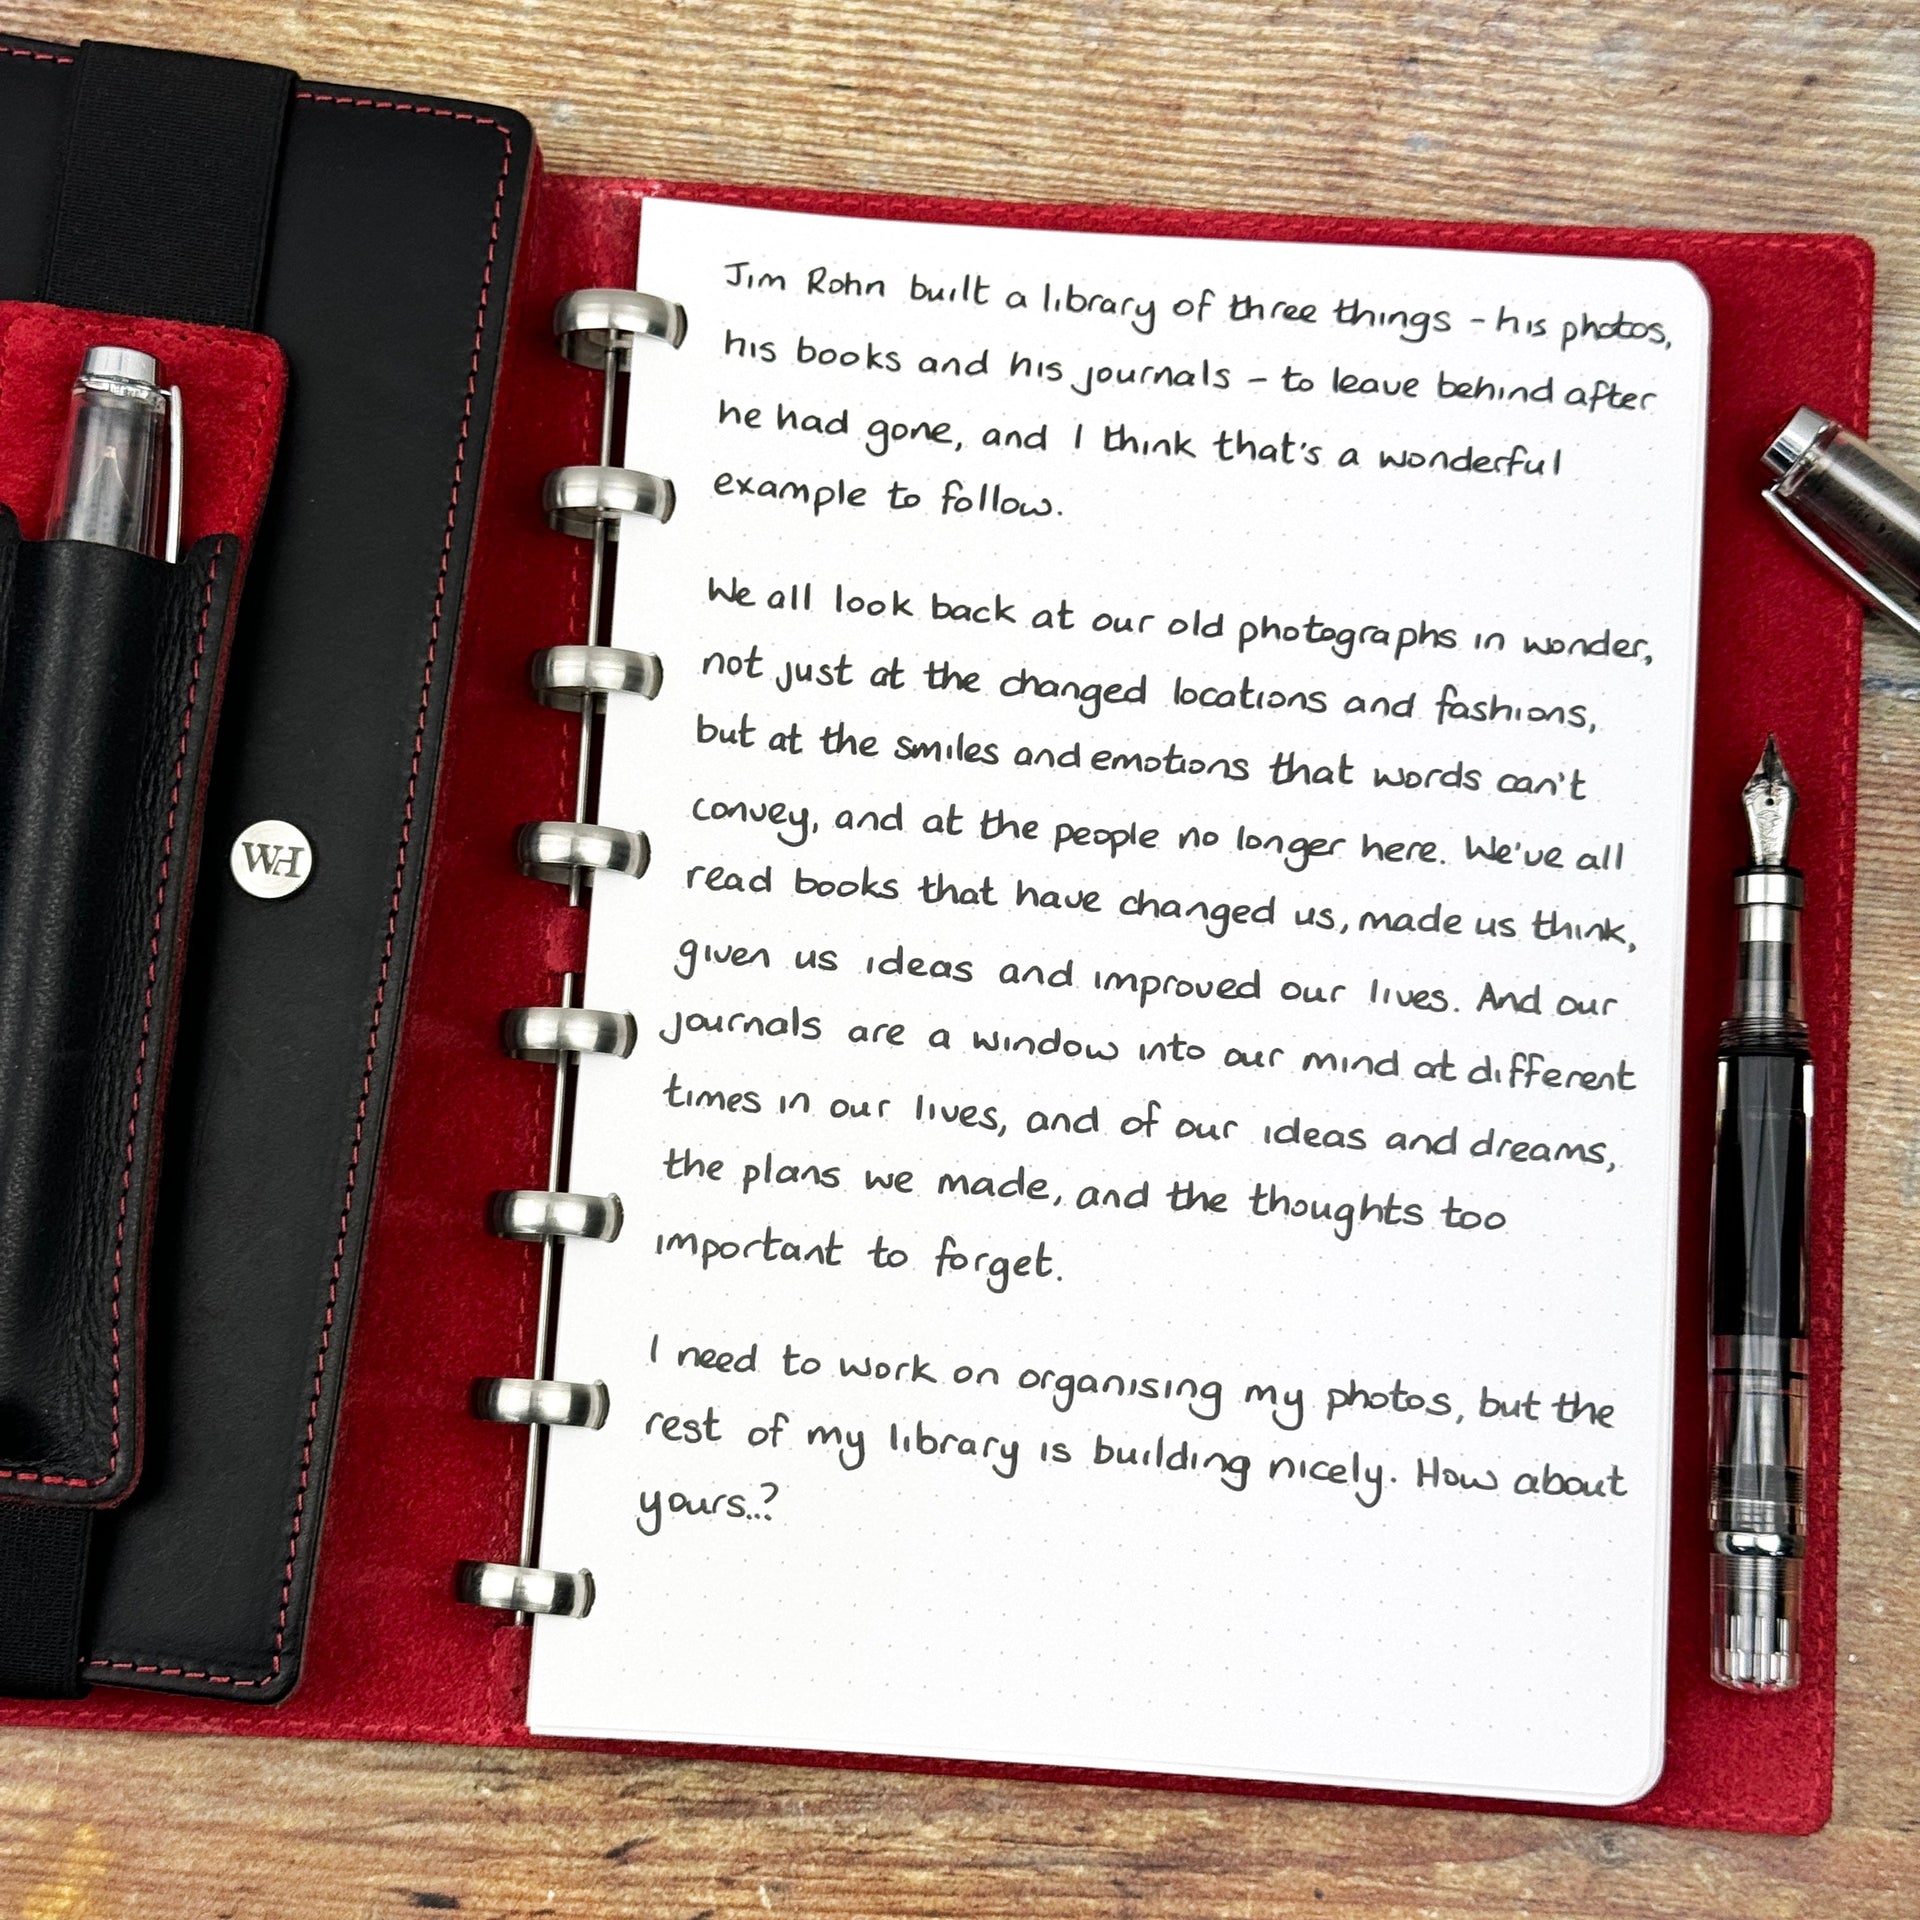 Jim Rohn built a library of three things - his photos,
his books and his journals - to leave behind after
he had gone, and I think that's a wonderful
example to follow.
We all look back at our old photographs in wonder,
not just at the changed locations and fashions,
but at the smiles and emotions that words can't
convey, and at the people no longer here. We've all
read books that have changed us, made us think,
given us ideas and improved our lives. And our
journals are a window into our mind at different
times in our lives, and of our ideas and dreams,
the plans we made, and the thoughts too
important to forget.
I need to work on organising my photos, but the
rest of my library is building nicely. How about
yours..?
WH